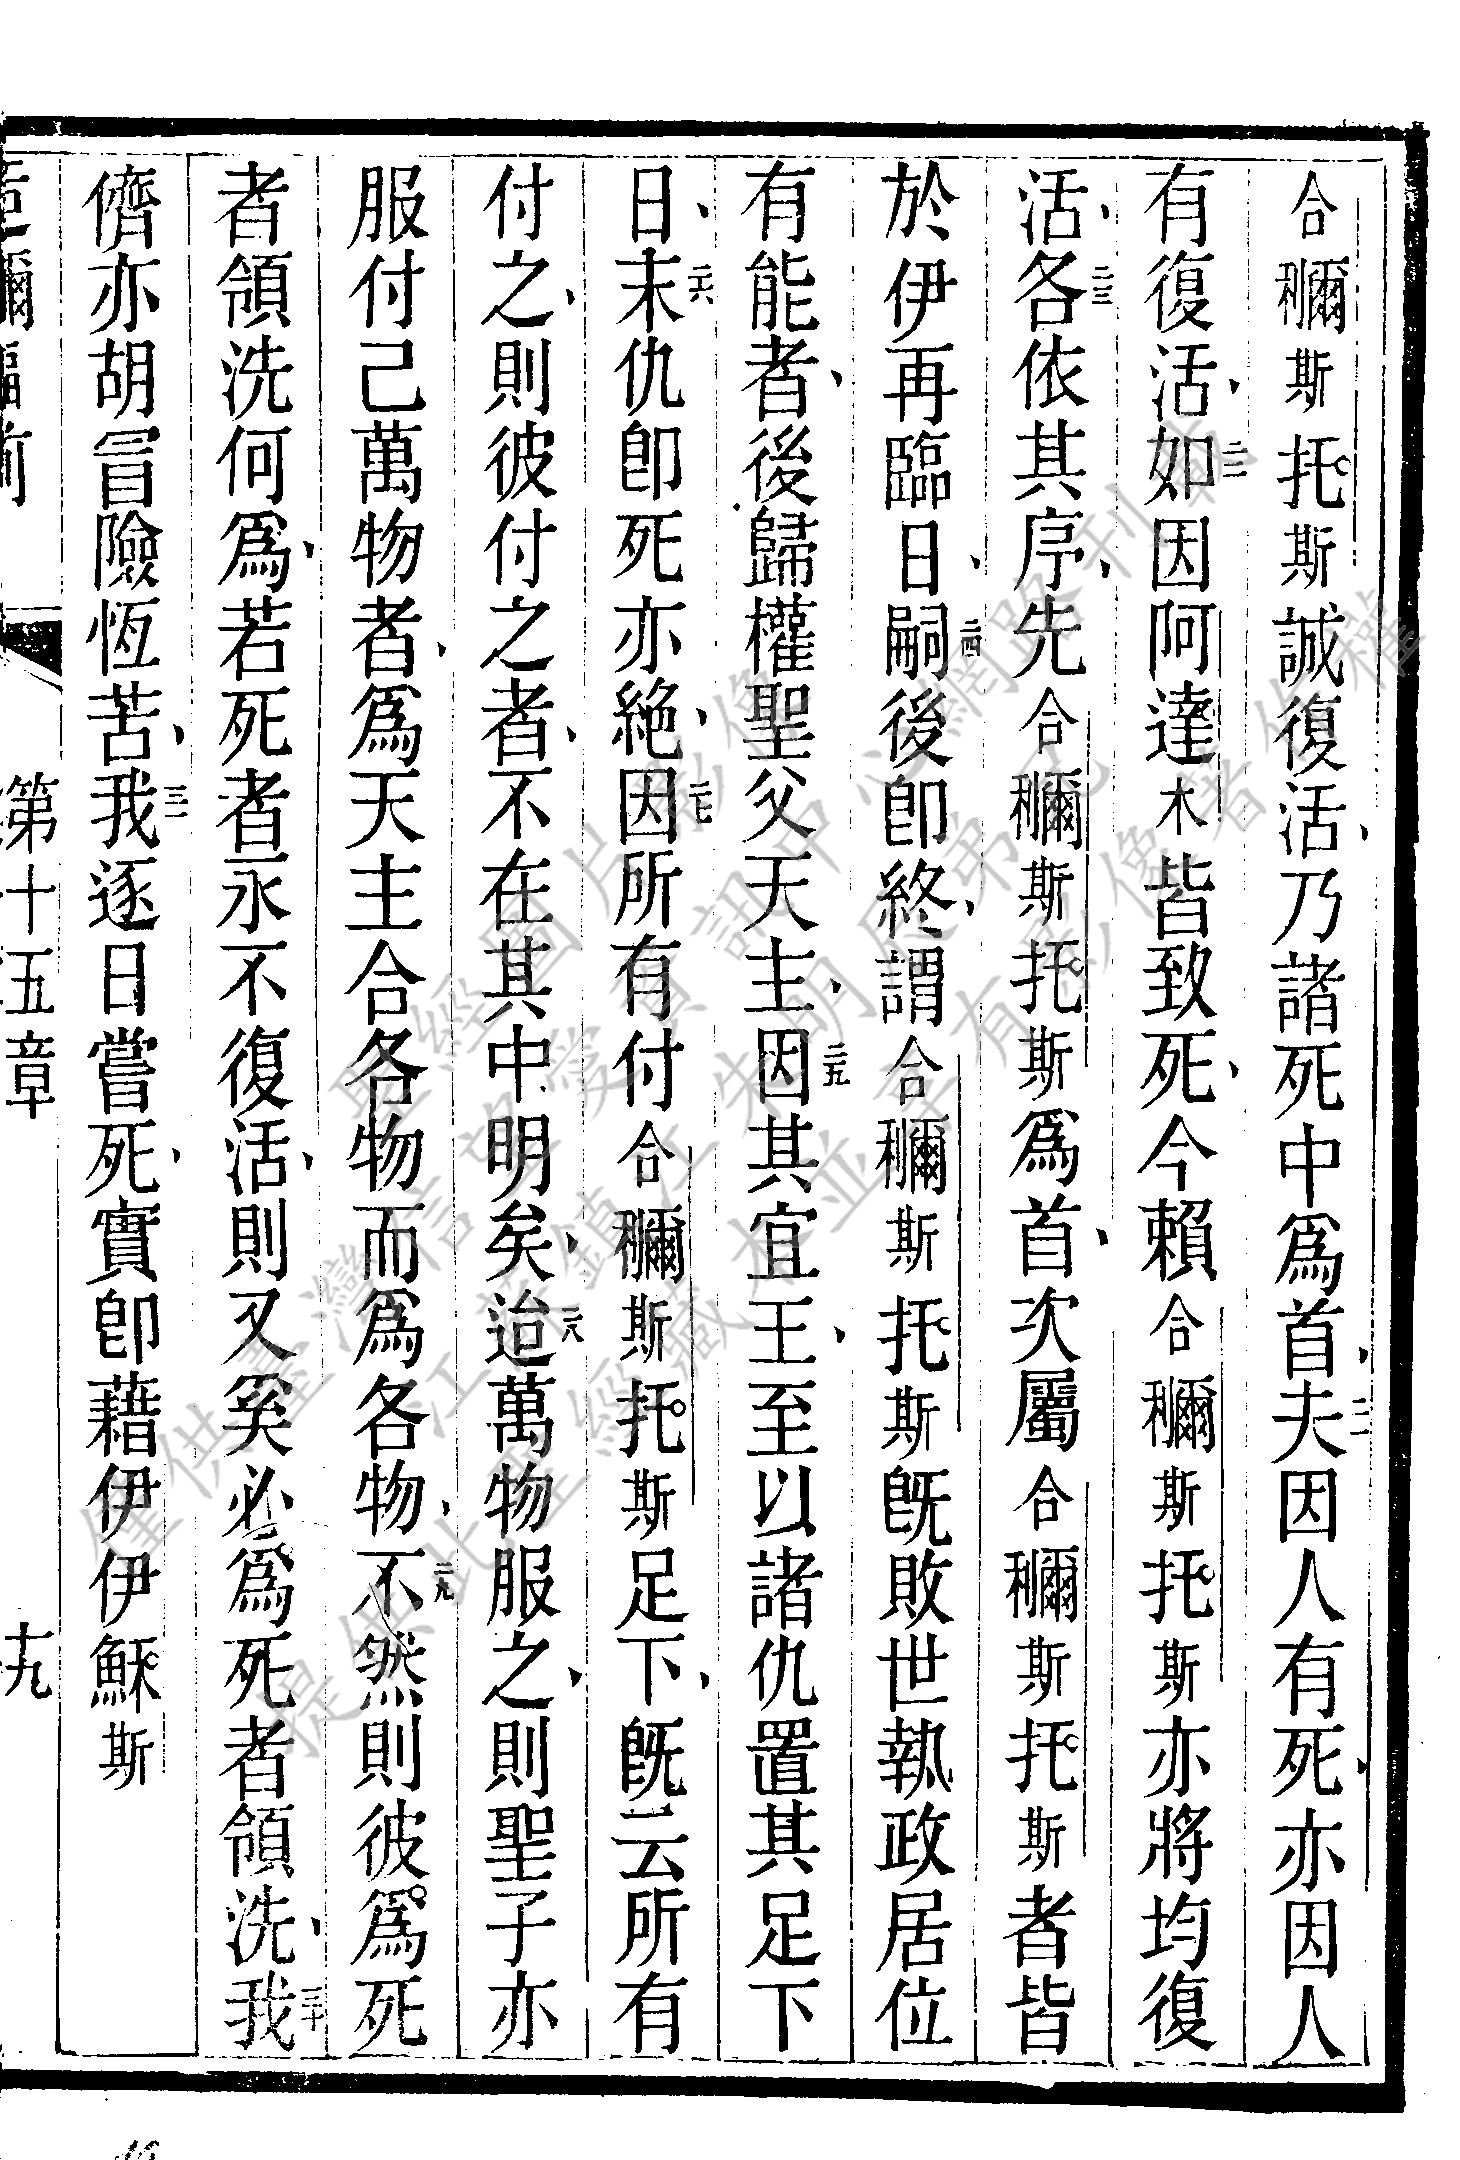 合𥡝斯托斯誠復活乃諸死中爲首二一夫因人有死亦因人
有復活二二如因阿達木皆致死今賴合𥡝斯托斯亦將均復
活二三各依其序先合𥡝斯托斯爲首次屬合𥡝斯托斯者皆
於伊再臨日二四嗣後卽終謂合𥡝斯托斯旣敗世執政居位
有能者後歸權聖父天主二五因其宜王至以諸仇置其足下
日二六末仇卽死亦絶二七因所有付合𥡝斯托斯足下旣云所有
付之則彼付之者不在其中明矣二八迨萬物服之則聖子亦
服付己萬物者爲天主合各物而爲各物二九不然則彼爲死
者領洗何爲若死者永不復活則又奚必爲死者領洗三十我
儕亦胡冒險恆苦三一我逐日嘗死實卽藉伊伊穌斯
第十五章
十九